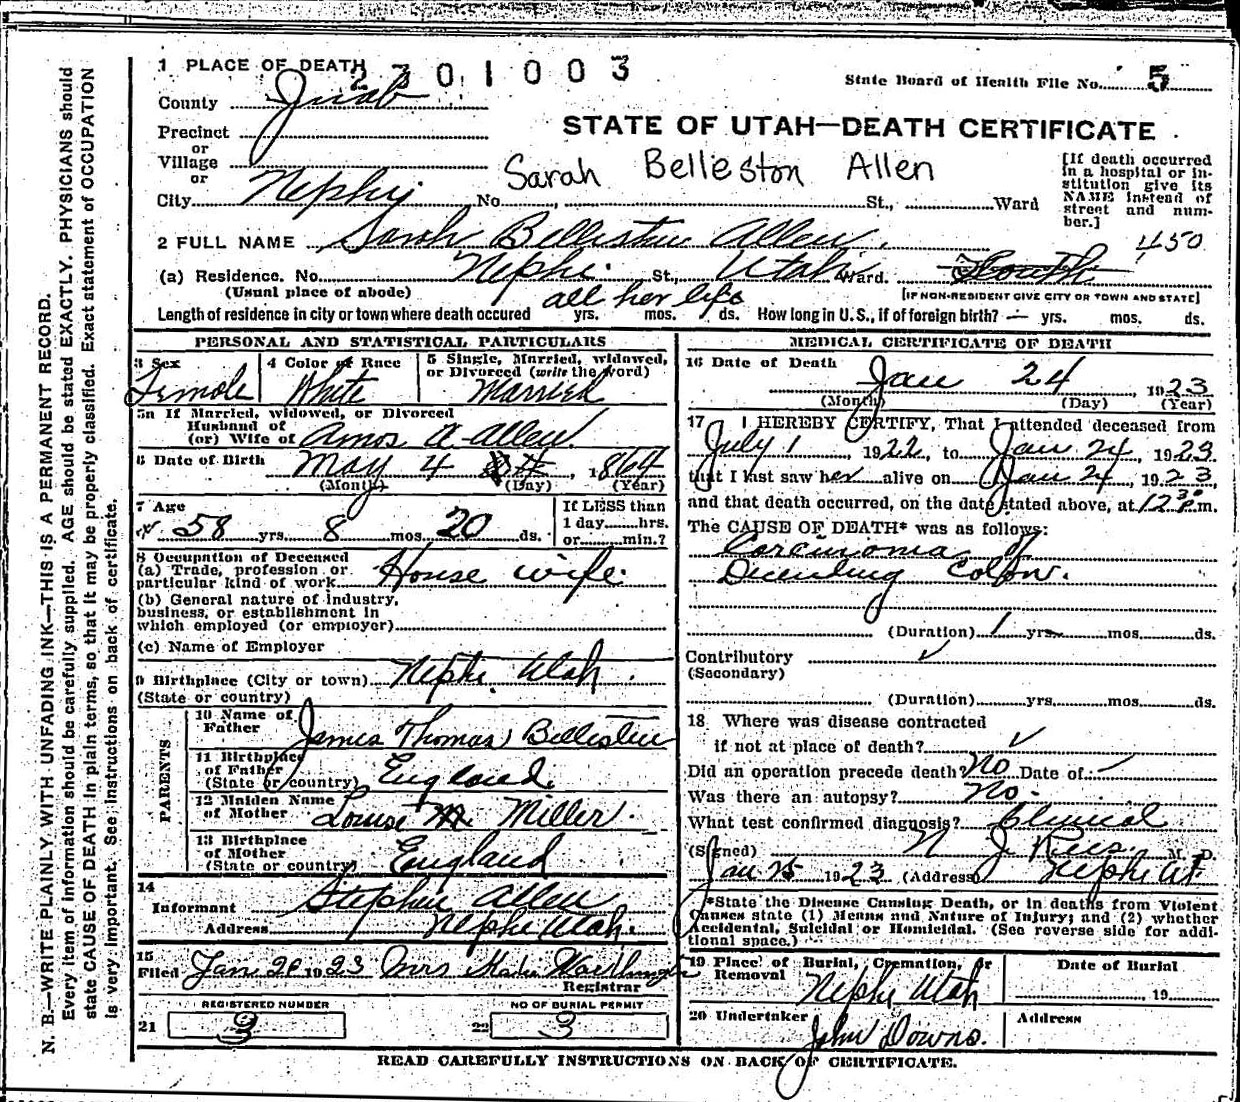 1 PLACE OF DEATH 2301003
State Board of Health File No. 5
County Juab
STATE OF UTAH—DEATH CERTIFICATE
Precinct
or
Village
or
City Nephi No. St., Ward
Sarah Belleston Allen
[If death occurred in a hospital or institution give its NAME instead of street and number.]
2 FULL NAME Sarah Bellistin Allen.
450
(a) Residence. No. Nephi St., Utah Ward.
(Usual place of abode)
[IF NON-RESIDENT GIVE CITY OR TOWN AND STATE]
Length of residence in city or town where death occured all her life yrs. mos. ds. How long in U.S., if of foreign birth? — yrs. mos. ds.
PERSONAL AND STATISTICAL PARTICULARS
3 Sex Female
4 Color of Race White
5 Single, Married, widowed, or Divorced (write the word) Married
5a If Married, widowed, or Divorced
Husband of
(or) Wife of Amos A Allen
6 Date of Birth May 4, 1864
(Month) (Day) (Year)
7 Age 58 yrs. 8 mos. 20 ds.
If LESS than
1 day......hrs.
or......min.?
8 Occupation of Deceased
(a) Trade, profession or
particular kind of work House wife
(b) General nature of industry,
business, or establishment in
which employed (or employer)
(c) Name of Employer
9 Birthplace (City or town) Nephi Utah
(State or country)
PARENTS
10 Name of Father James Thomas Bellistin
11 Birthplace of Father
(State or country) England
12 Maiden Name of Mother Louise M. Miller
13 Birthplace of Mother
(State or country) England
14
Informant Stephen Allen
Address Nephi Utah.
15
Filed Jan 1923 Mrs
Registrar
REGISTERED NUMBER
21 3
NO OF BURIAL PERMIT
22 3
MEDICAL CERTIFICATE OF DEATH
16 Date of Death Jan 24, 1923
(Month) (Day) (Year)
17 I HEREBY CERTIFY, That I attended deceased from
July 1 1922, to Jan 24, 1923
that I last saw her alive on Jan 24, 1923,
and that death occurred, on the date stated above, at 12 30 P.m.
The CAUSE OF DEATH* was as follows:
Carcinoma of
Decending Colon.
(Duration) 1 yrs. mos. ds.
Contributory ✓
(Secondary)
(Duration) yrs. mos. ds.
18 Where was disease contracted
if not at place of death? ✓
Did an operation precede death? No Date of —
Was there an autopsy? No.
What test confirmed diagnosis? Clinical
(Signed) N J Rees M. D.
Jan 25 1923 (Address) Nephi Ut
*State the Disease Causing Death, or in deaths from Violent
Causes state (1) Means and Nature of Injury; and (2) whether
Accidental, Suicidal or Homicidal. (See reverse side for additional space.)
19 Place of Burial, Cremation, or Removal Nephi Utah
Date of Burial
19
20 Undertaker John Downs.
Address
READ CAREFULLY INSTRUCTIONS ON BACK OF CERTIFICATE.
N. B.—WRITE PLAINLY WITH UNFADING INK—THIS IS A PERMANENT RECORD.
Every item of information should be carefully supplied. AGE should be stated EXACTLY. PHYSICIANS should
state CAUSE OF DEATH in plain terms, so that it may be properly classified. Exact statement of OCCUPATION
is very important. See instructions on back of certificate.